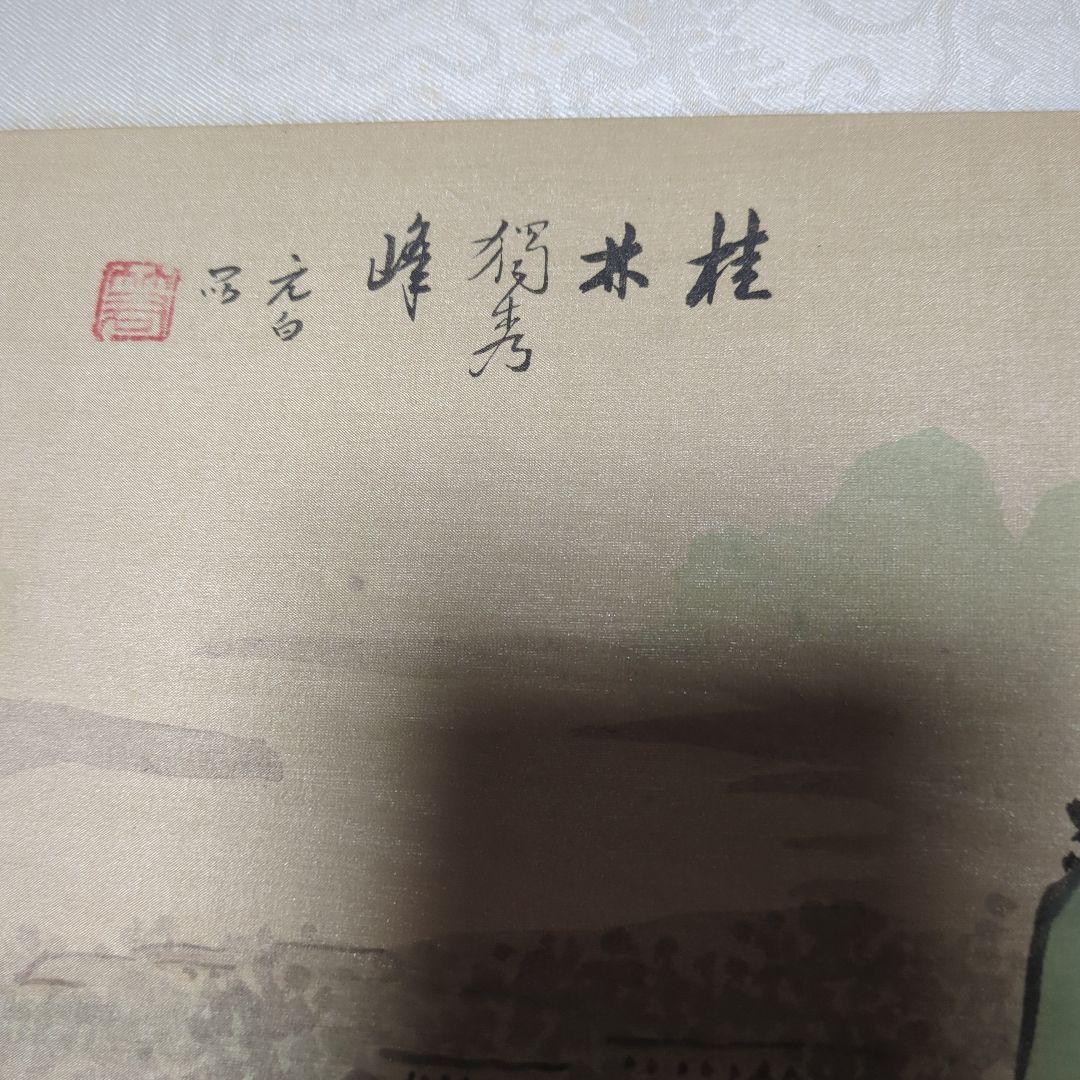 桂
林
獨秀
峰
元白